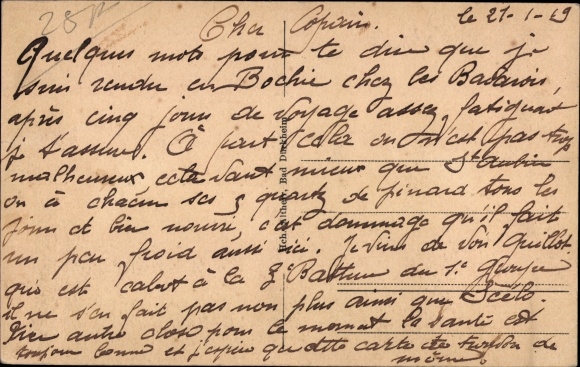 le 21-1-19
Cher Copain
Quelques mots pour te dire que je
suis rendu en Bochie chez les Bavarois,
après cinq jours de voyage assez fatiguant
je t'assure. A part cela on n'est pas trop
malheureux cela vaut mieux que St Aubin
on à chacun ses 3 quartz de pinard tous les
jours et bien nourri, c'est dommage qu'il fait
un peu froid aussi ici. Je viens de voir Guillot
qui est cabot à la 3e Batterie du 1e Groupe
il ne s'en fait pas non plus ainsi que
autre chose pour le moment la santé est
toujours bonne et j'espère que cette carte te de
même
Bad Dürkheim